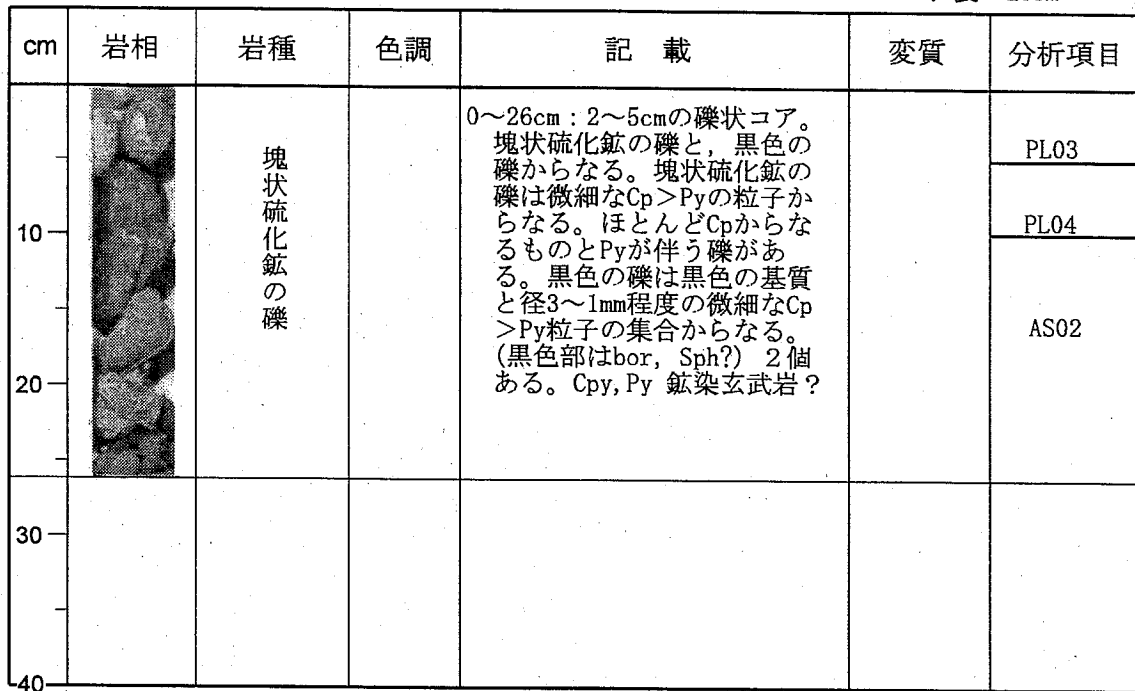 cm 岩相 岩種 色調 記 載 変質 分析項目
0～26cm：2～5cmの礫状コア。
塊状硫化鉱の礫と，黒色の
礫からなる。塊状硫化鉱の
礫は微細なCp＞Pyの粒子か
らなる。ほとんどCpからな
るものとPyが伴う礫があ
る。黒色の礫は黒色の基質
と径3～1mm程度の微細なCp
＞Py粒子の集合からなる。
(黒色部はbor, Sph?) 2個
ある。Cpy,Py 鉱染玄武岩？
塊状硫化鉱の礫
PL03
PL04
AS02
10
20
30
40